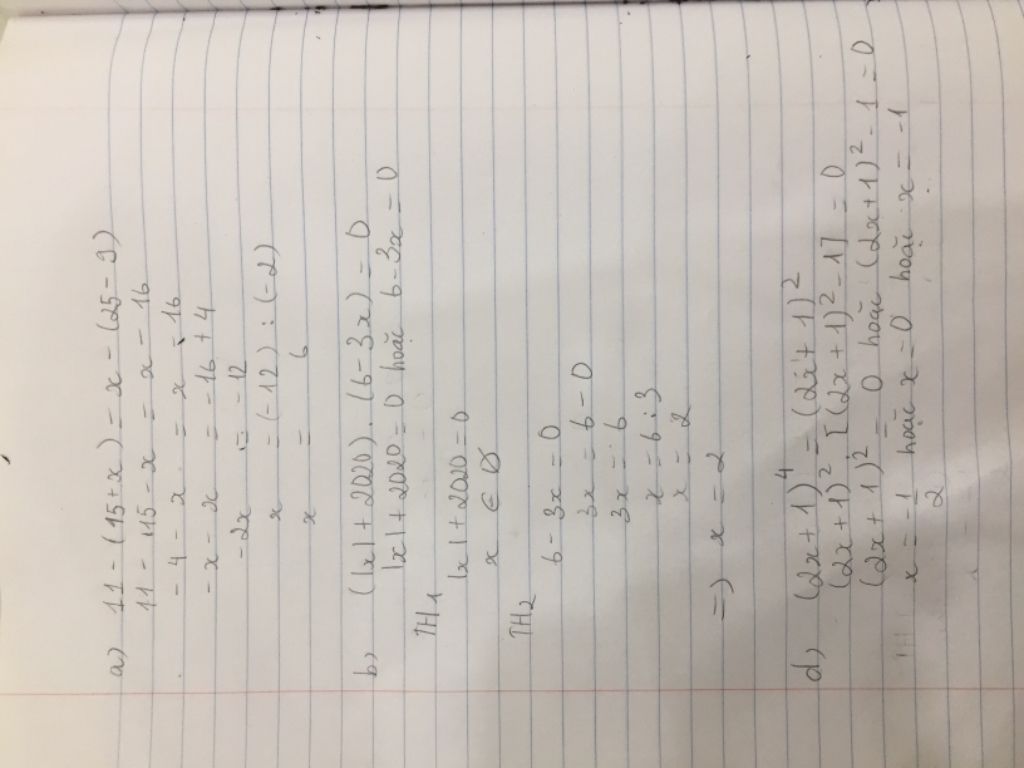 a) 11 - (15 + x) = x - (25 - 9)
11 - 15 - x = x - 16
- 4 - x = x - 16
- x - x = - 16 + 4
- 2x = - 12
x = (-12) : (-2)
x = 6
b) (|x| + 2020) . (6 - 3x) = 0
|x| + 2020 = 0 hoặc 6 - 3x = 0
TH1
|x| + 2020 = 0
x ∈ ∅
TH2
6 - 3x = 0
3x = 6 - 0
3x = 6
x = 6 : 3
x = 2
=> x = 2
d) (2x + 1)⁴ = (2x + 1)²
(2x + 1)² [(2x + 1)² - 1] = 0
(2x + 1)² = 0 hoặc (2x + 1)² - 1 = 0
TH x = -1/2 hoặc x = 0 hoặc x = -1